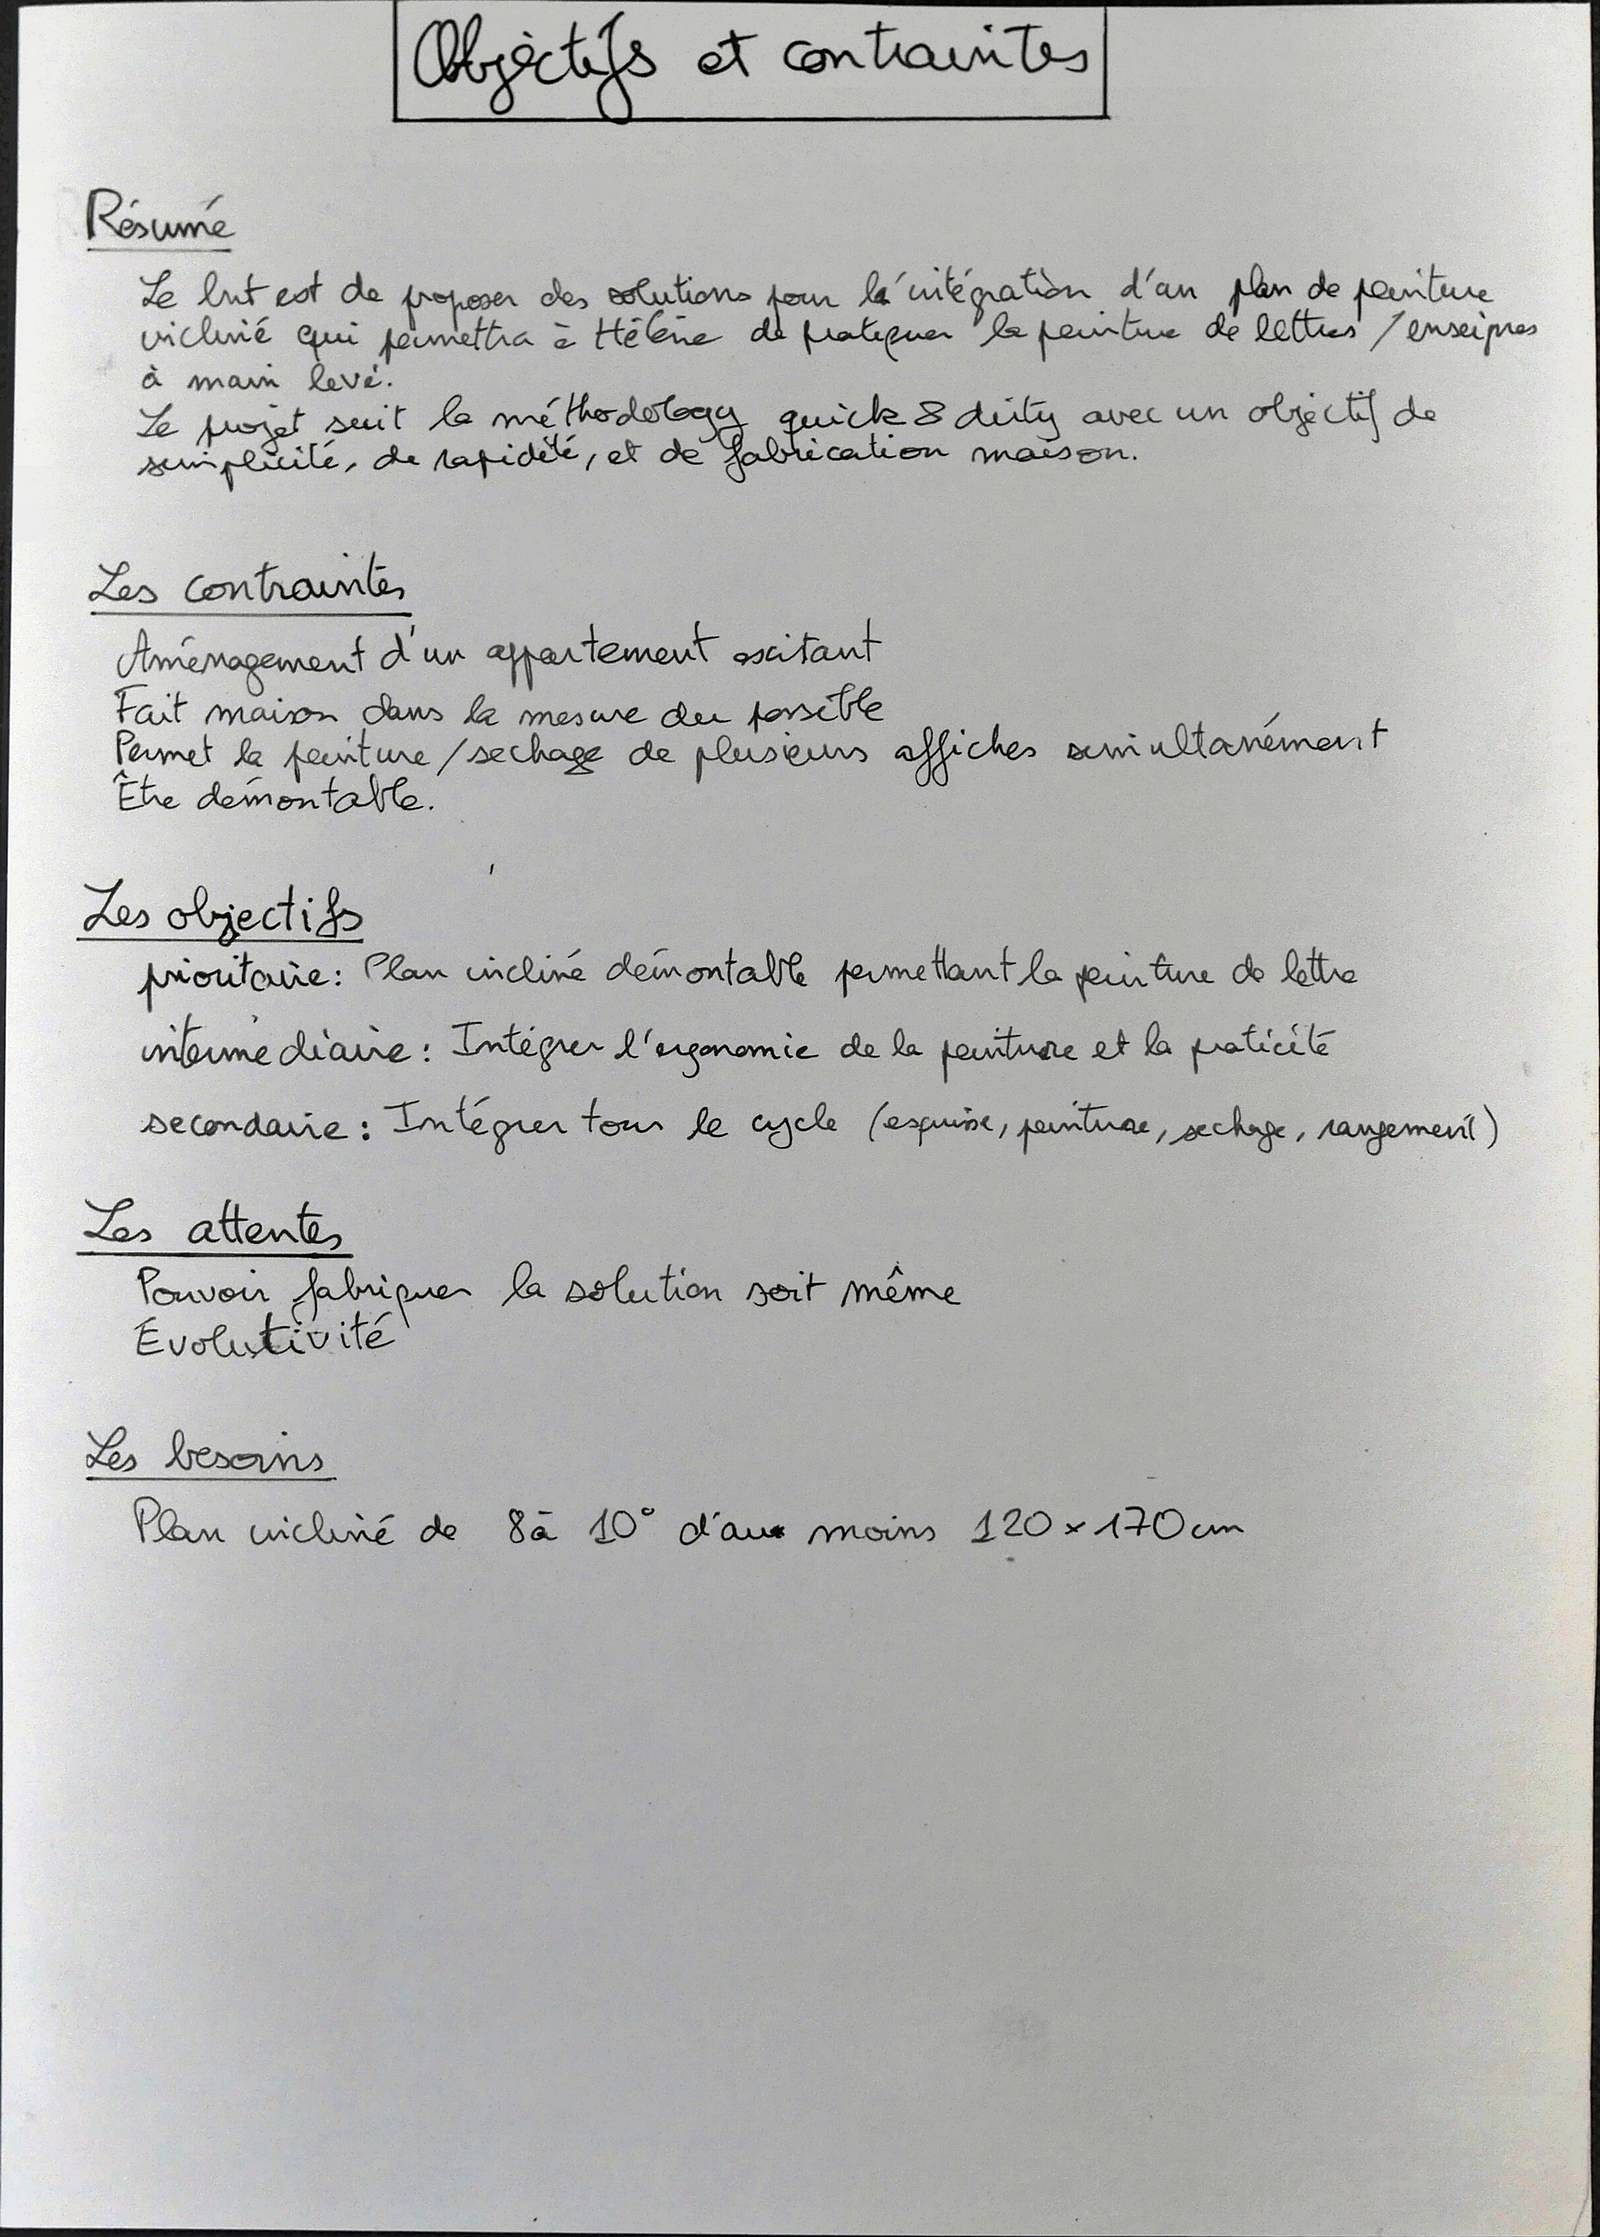 Objectifs et contraintes
Résumé
Le but est de proposer des solutions pour l'intégration d'un plan de peinture
incliné qui permettra à Hélène de pratiquer la peinture de lettres / enseignes
à main levé.
Le projet suit la méthodology quick & dirty avec un objectif de
simplicité, de rapidité, et de fabrication maison.
Les contraintes
Aménagement d'un appartement existant
Fait maison dans la mesure du possible
Permet la peinture / sechage de plusieurs affiches simultanément
Être démontable.
Les objectifs
prioritaire : Plan incliné démontable permettant la peinture de lettre
intermédiaire : Intégrer l'ergonomie de la peinture et la praticité
secondaire : Intégrer tous le cycle (esquisse, peinture, sechage, rangement)
Les attentes
Pouvoir fabriquer la solution soit même
Évolutivité
Les besoins
Plan incliné de 8 à 10° d'au moins 120 x 170 cm